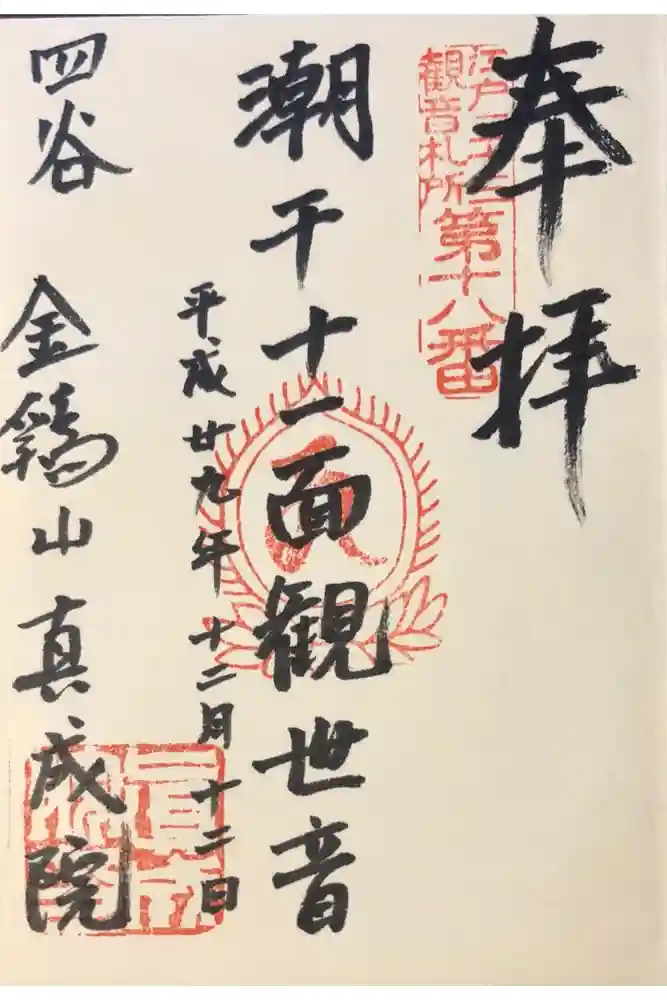 奉拝
江戸三十三
観音札所
第十八番
潮干十一面観世音
平成廿九年十二月十二日
四谷 金鶏山真成院